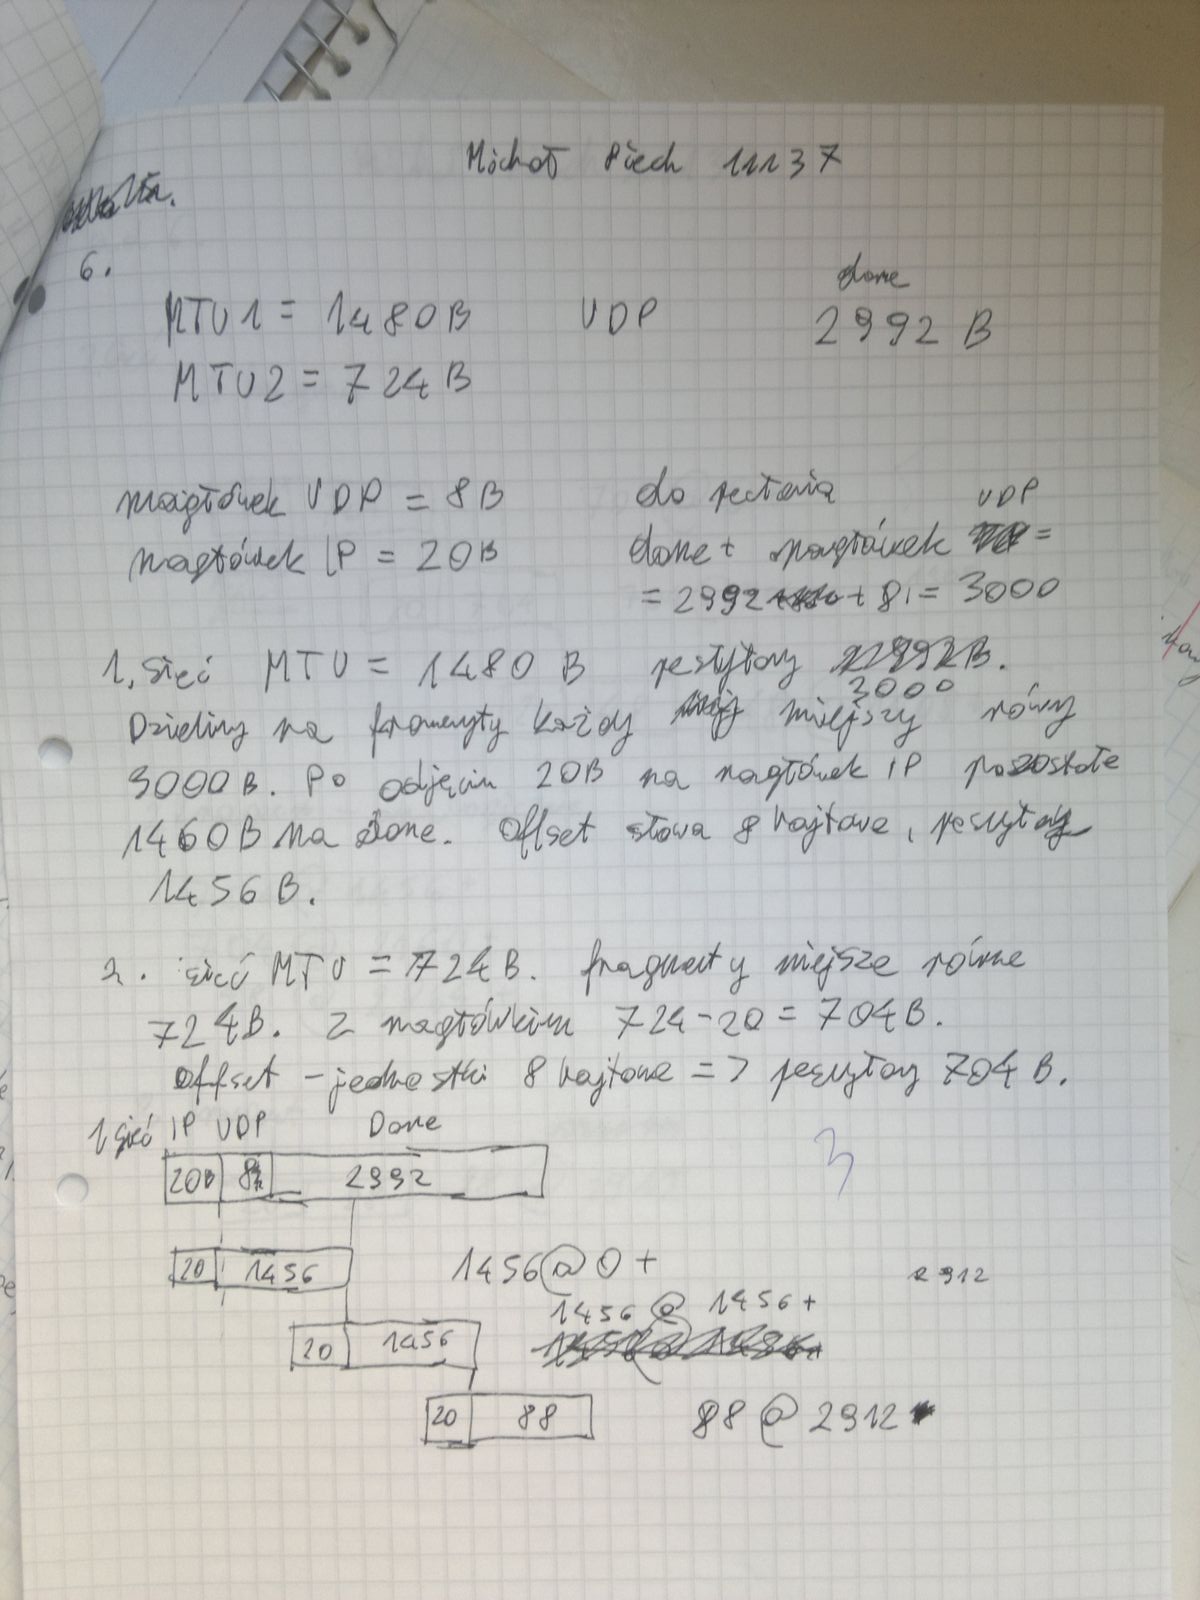 Michał Piech 11137
6.
MTU1 = 1480B UDP dane 2992 B
MTU2 = 724B
nagłówek UDP = 8B do
nagłówek IP = 20B dane + nagłówek UDP =
= 2992 + 8 = 3000
1. sieć MTU = 1480 B 3000
Dzielimy na każdy równy
3000B. Po odjęciu 20B na nagłówek IP pozostałe
1460B na dane. Offset słowa 8 bajtowe,
1456 B.
2. sieć MTU = 724B. fragmenty równe
724B. Z nagłówkiem 724-20 = 704B.
Offset - jednostki 8 bajtowe => 704 B.
1 sieć IP UDP Dane
20B 8 2992
3
20 1456 1456@0+
2912
20 1456 1456@1456+
20 88 88@2912